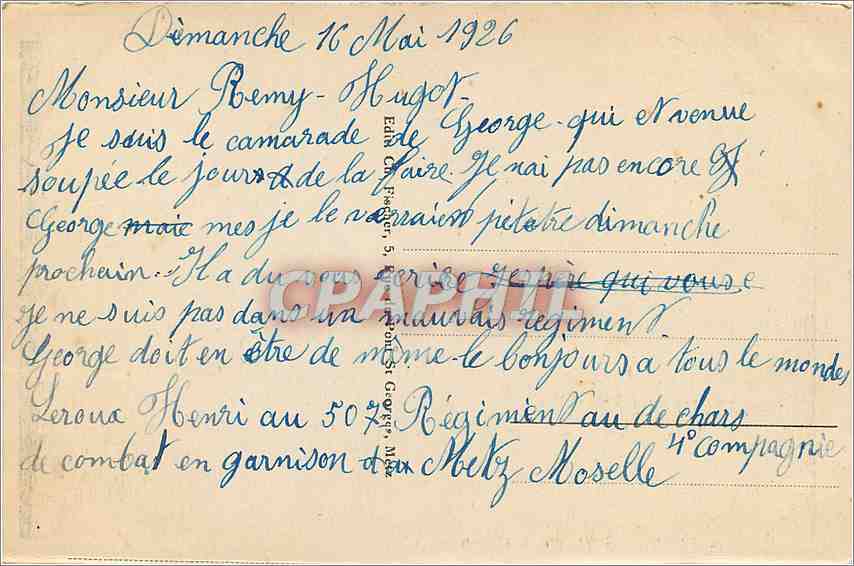 Dimanche 16 Mai 1926
Monsieur Remy-Hugot-
je suis le camarade de George-qui et venue
soupée le jours de la foire. Je nai pas encore
George maie mes je le verraien petetre dimanche
prochain. Il a du vous ecrire Jespire qui vous e
je ne suis pas dans un mauvais regiment
George doit en être de même-le bonjours a tous le mondes
Leroux Henri au 507 Régiment au de chars
de combat en garnison Metz Moselle 4° Compagnie
Edit Ch. Fischer, 5, Pont St Georges, Metz
CPAPHIL